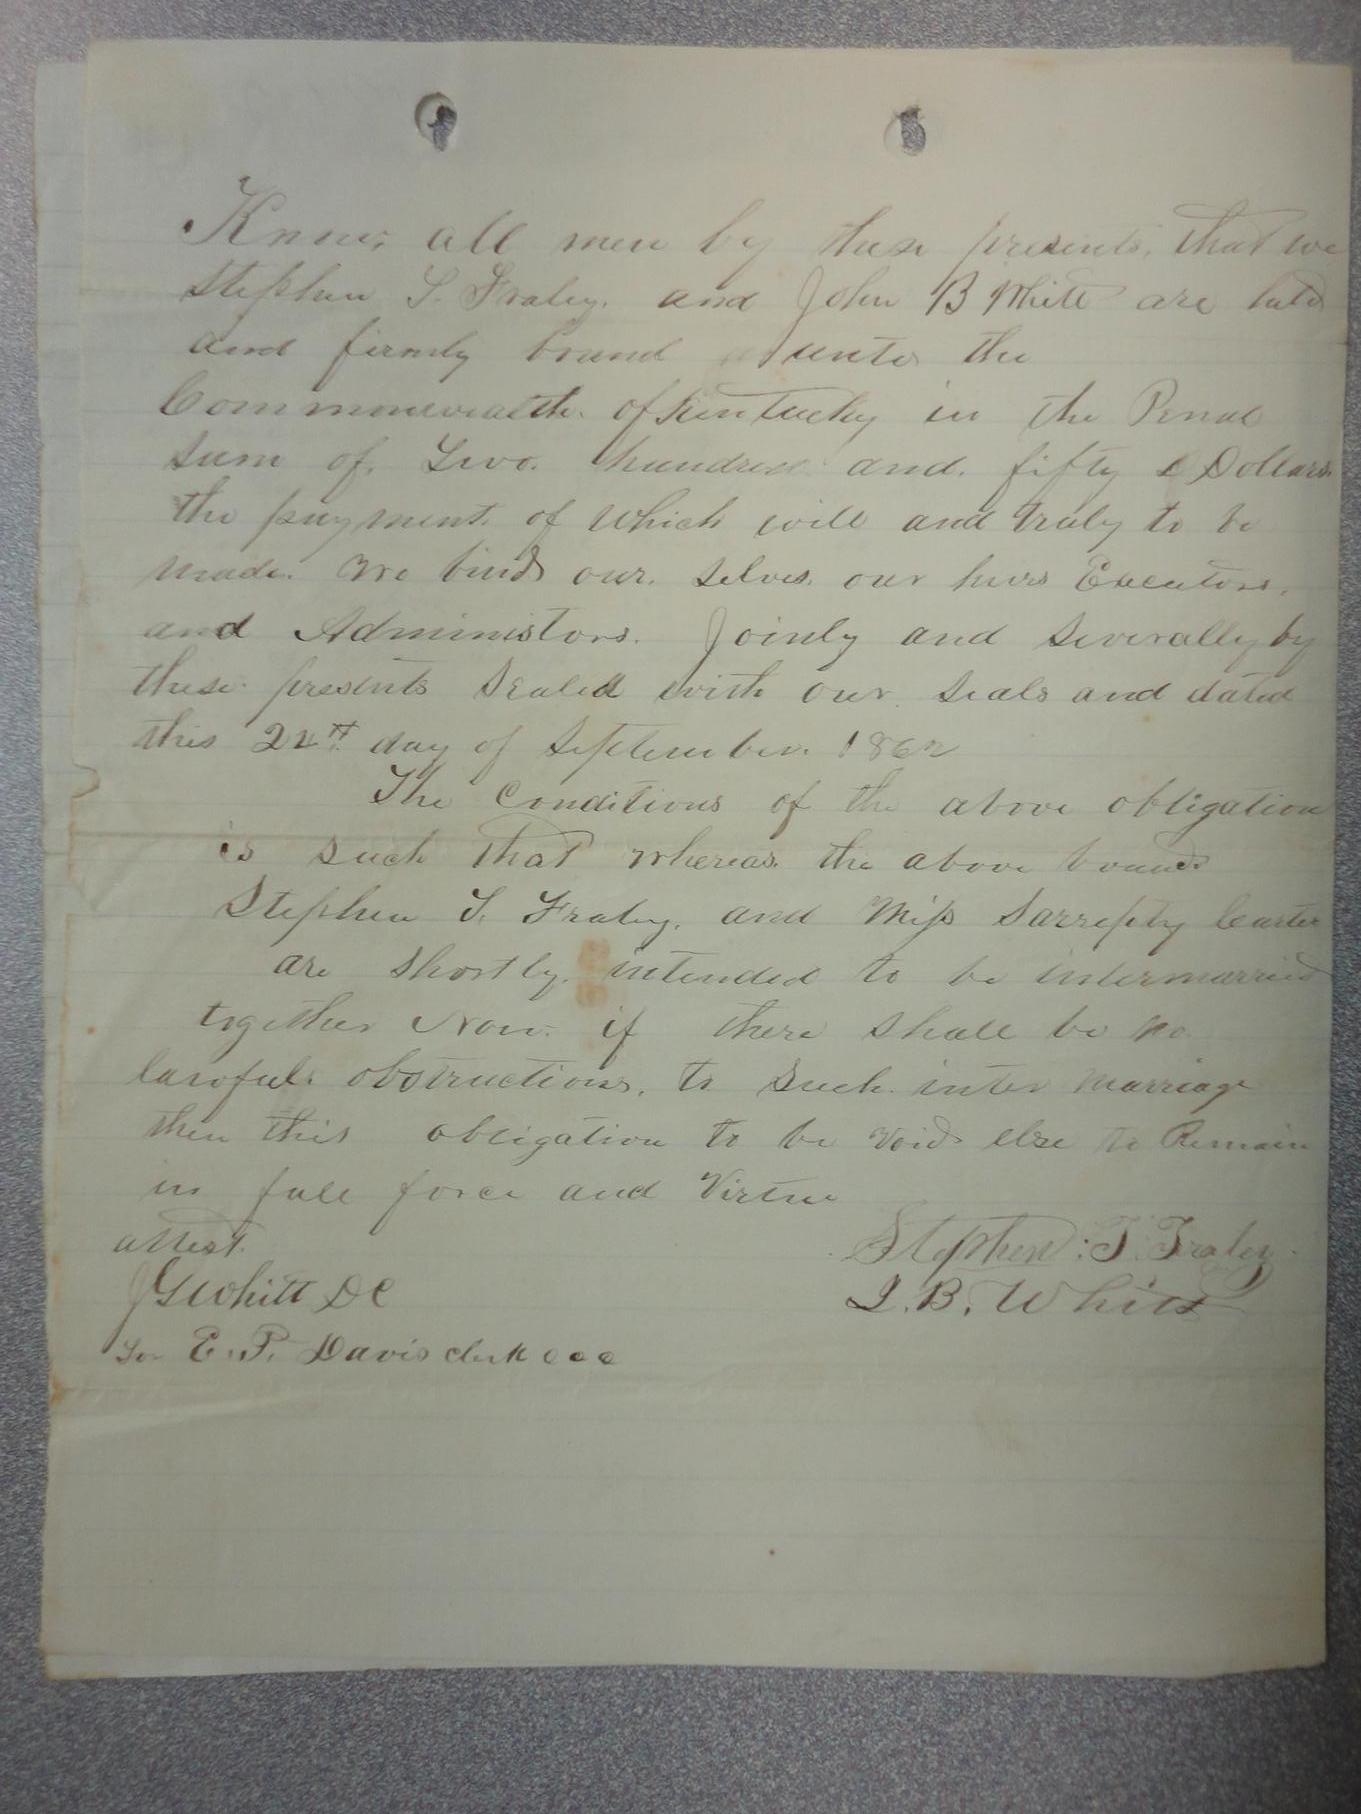 Know all men by these presents, that we
Stephen T. Fraley. and John B White are held
and firmly bound unto the
Commonwealth. of Kentucky in the Penal
sum of. Two. hundred and. fifty Dollars.
the payment. of which will and truly to be
made. We bind our. selves. our heirs Executors.
and Administors. Jointly and severally by
these. presents Sealed with our. seals and dated
this day of September. 1862
The Conditions of the above obligation
is such that whereas. the above bound
Stephen T. Fraley. and Miss Sarrepty Carter
are shortly. intended to be intermarried
together Now. if there shall be no
lawful. obstructions. to such. inter marriage
then this obligation to be void else to Remain
in full force and Virtue
attest.
Stephen : T. Fraley
JGWhitt DC
J. B. Whitt
for E. P. Davis clerk c c c